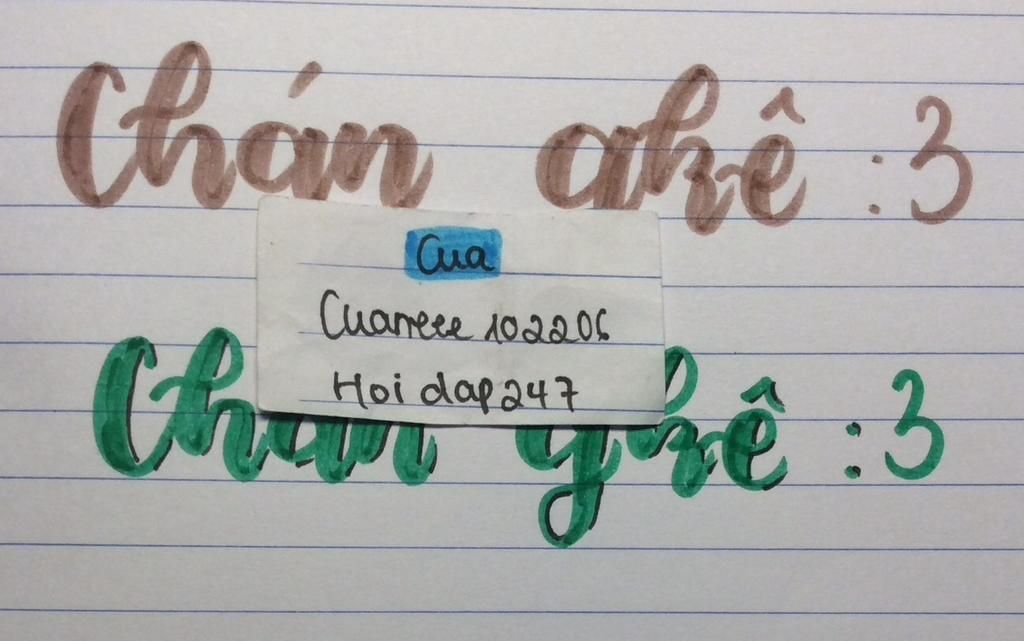 Chán ghê :3
Cua
Cuarreee 102206
Hoi dap247
Chán ghê :3